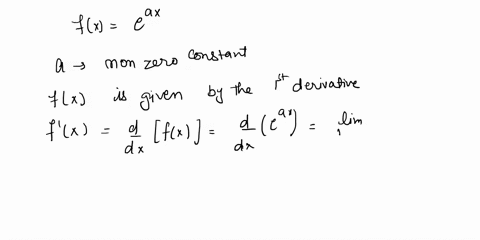 f(x) = e^{ax}
a → non zero constant
f(x) is given by the 1^{st} derivative
f'(x) = \frac{d}{dx} [f(x)] = \frac{d}{dx} (e^{ax}) = lim